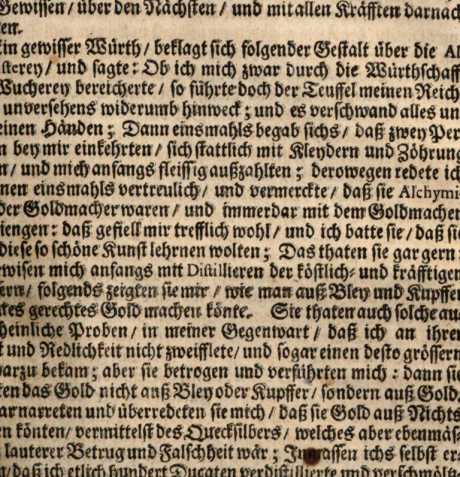 Gewissen / über den Nächsten / und mit allen Kräfften darnac
en.
Ein gewisser Würth / beklagt sich folgender Gestalt über die Al
isterey / und sagte: Ob ich mich zwar durch die Würthschaff
Wucherey bereicherte / so führte doch der Teuffel meinen Reich
unversehens widerumb hinweck; und es verschwand alles un
einen Händen; Dann einsmahls begab sichs / daß zwey Per
n bey mir einkehrten / sich stattlich mit Kleydern und Zöhrung
n / und mich anfangs fleissig außzahlten; derowegen redete ich
nen einsmahls vertreulich / und vermerckte / daß sie Alchymi-
der Goldmacher waren / und immerdar mit dem Goldmachen
iengen: daß gefiell mir trefflich wohl / und ich batte sie / daß sie
diese so schöne Kunst lehrnen wolten; Das thaten sie gar gern:
ewisen mich anfangs mit Distillieren der köstlich- und kräfftigen
sern / folgends zeigten sie mir / wie man auß Bley und Kupffer
tes gerechtes Gold machen könte. Sie thaten auch solche au
heinliche Proben / in meiner Gegenwart / daß ich an ihrer
t und Redlichkeit nicht zweifflete / und sogar einen desto grössern
darzu bekam; aber sie betrogen und verführten mich: dann sie
ten das Gold nicht auß Bley oder Kupffer / sondern auß Gold.
arnarreten und überredeten sie mich / daß sie Gold auß Nichts
n könten / vermittelst des Quecksilbers / welches aber ebenmäs-
lauterer Betrug und Falschheit wär; Inmassen ichs selbst er-
n / daß ich etlich hundert Ducaten verdistillierte und verschmöltz-